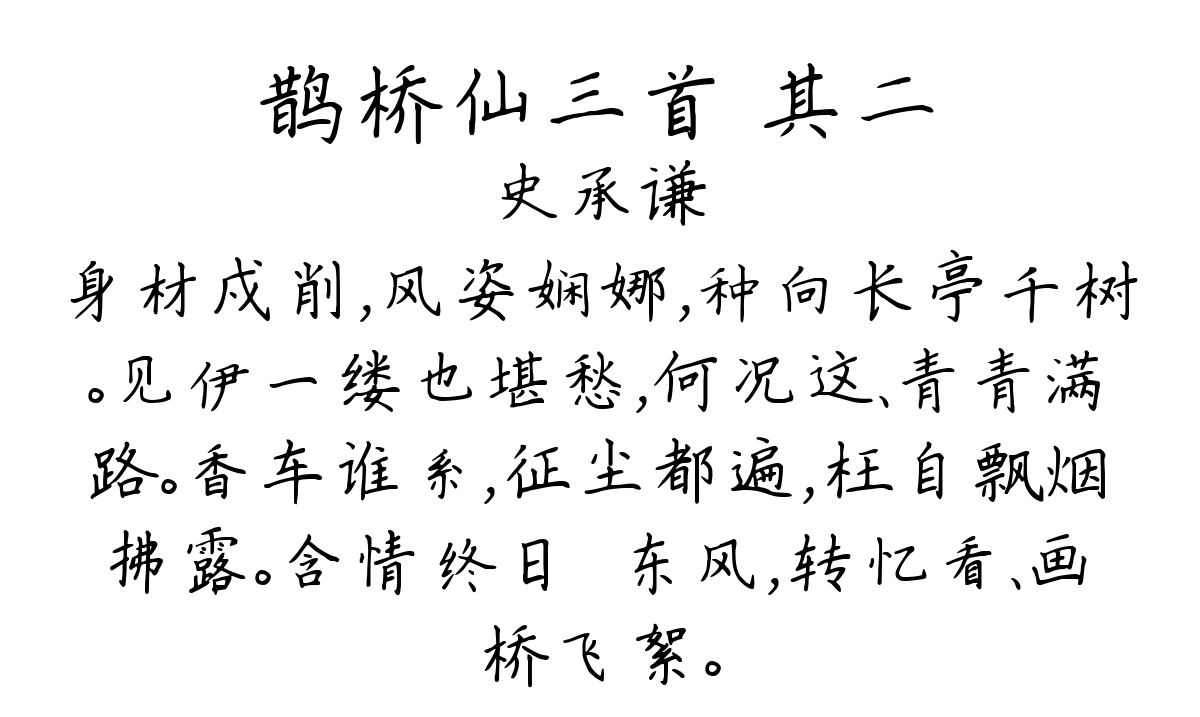 鹊桥仙三首 其二
史承谦
身材戍削,风姿娴娜,种向长亭千树
。见伊一缕也堪愁,何况这、青青满
路。香车谁系,征尘都遍,枉自飘烟
拂露。含情终日 东风,转忆看、画
桥飞絮。